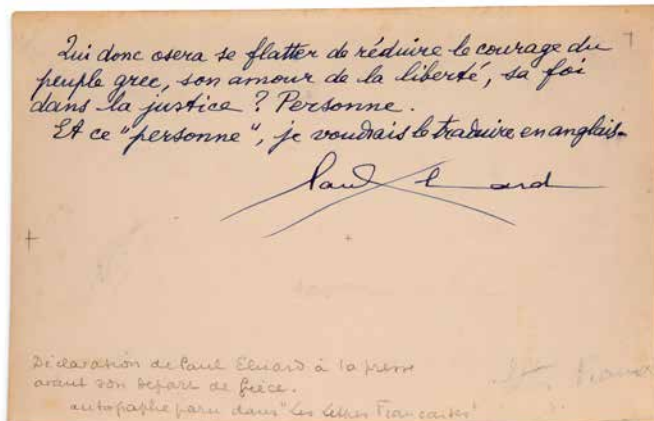 Qui donc osera se flatter de réduire le courage du
peuple grec, son amour de la liberté, sa foi
dans la justice ? Personne.
Et ce "personne", je voudrais le traduire en anglais.
Paul Eluard
Déclaration de Paul Eluard à la presse
avant son départ de Grèce.
autographe paru dans "Les Lettres Françaises"